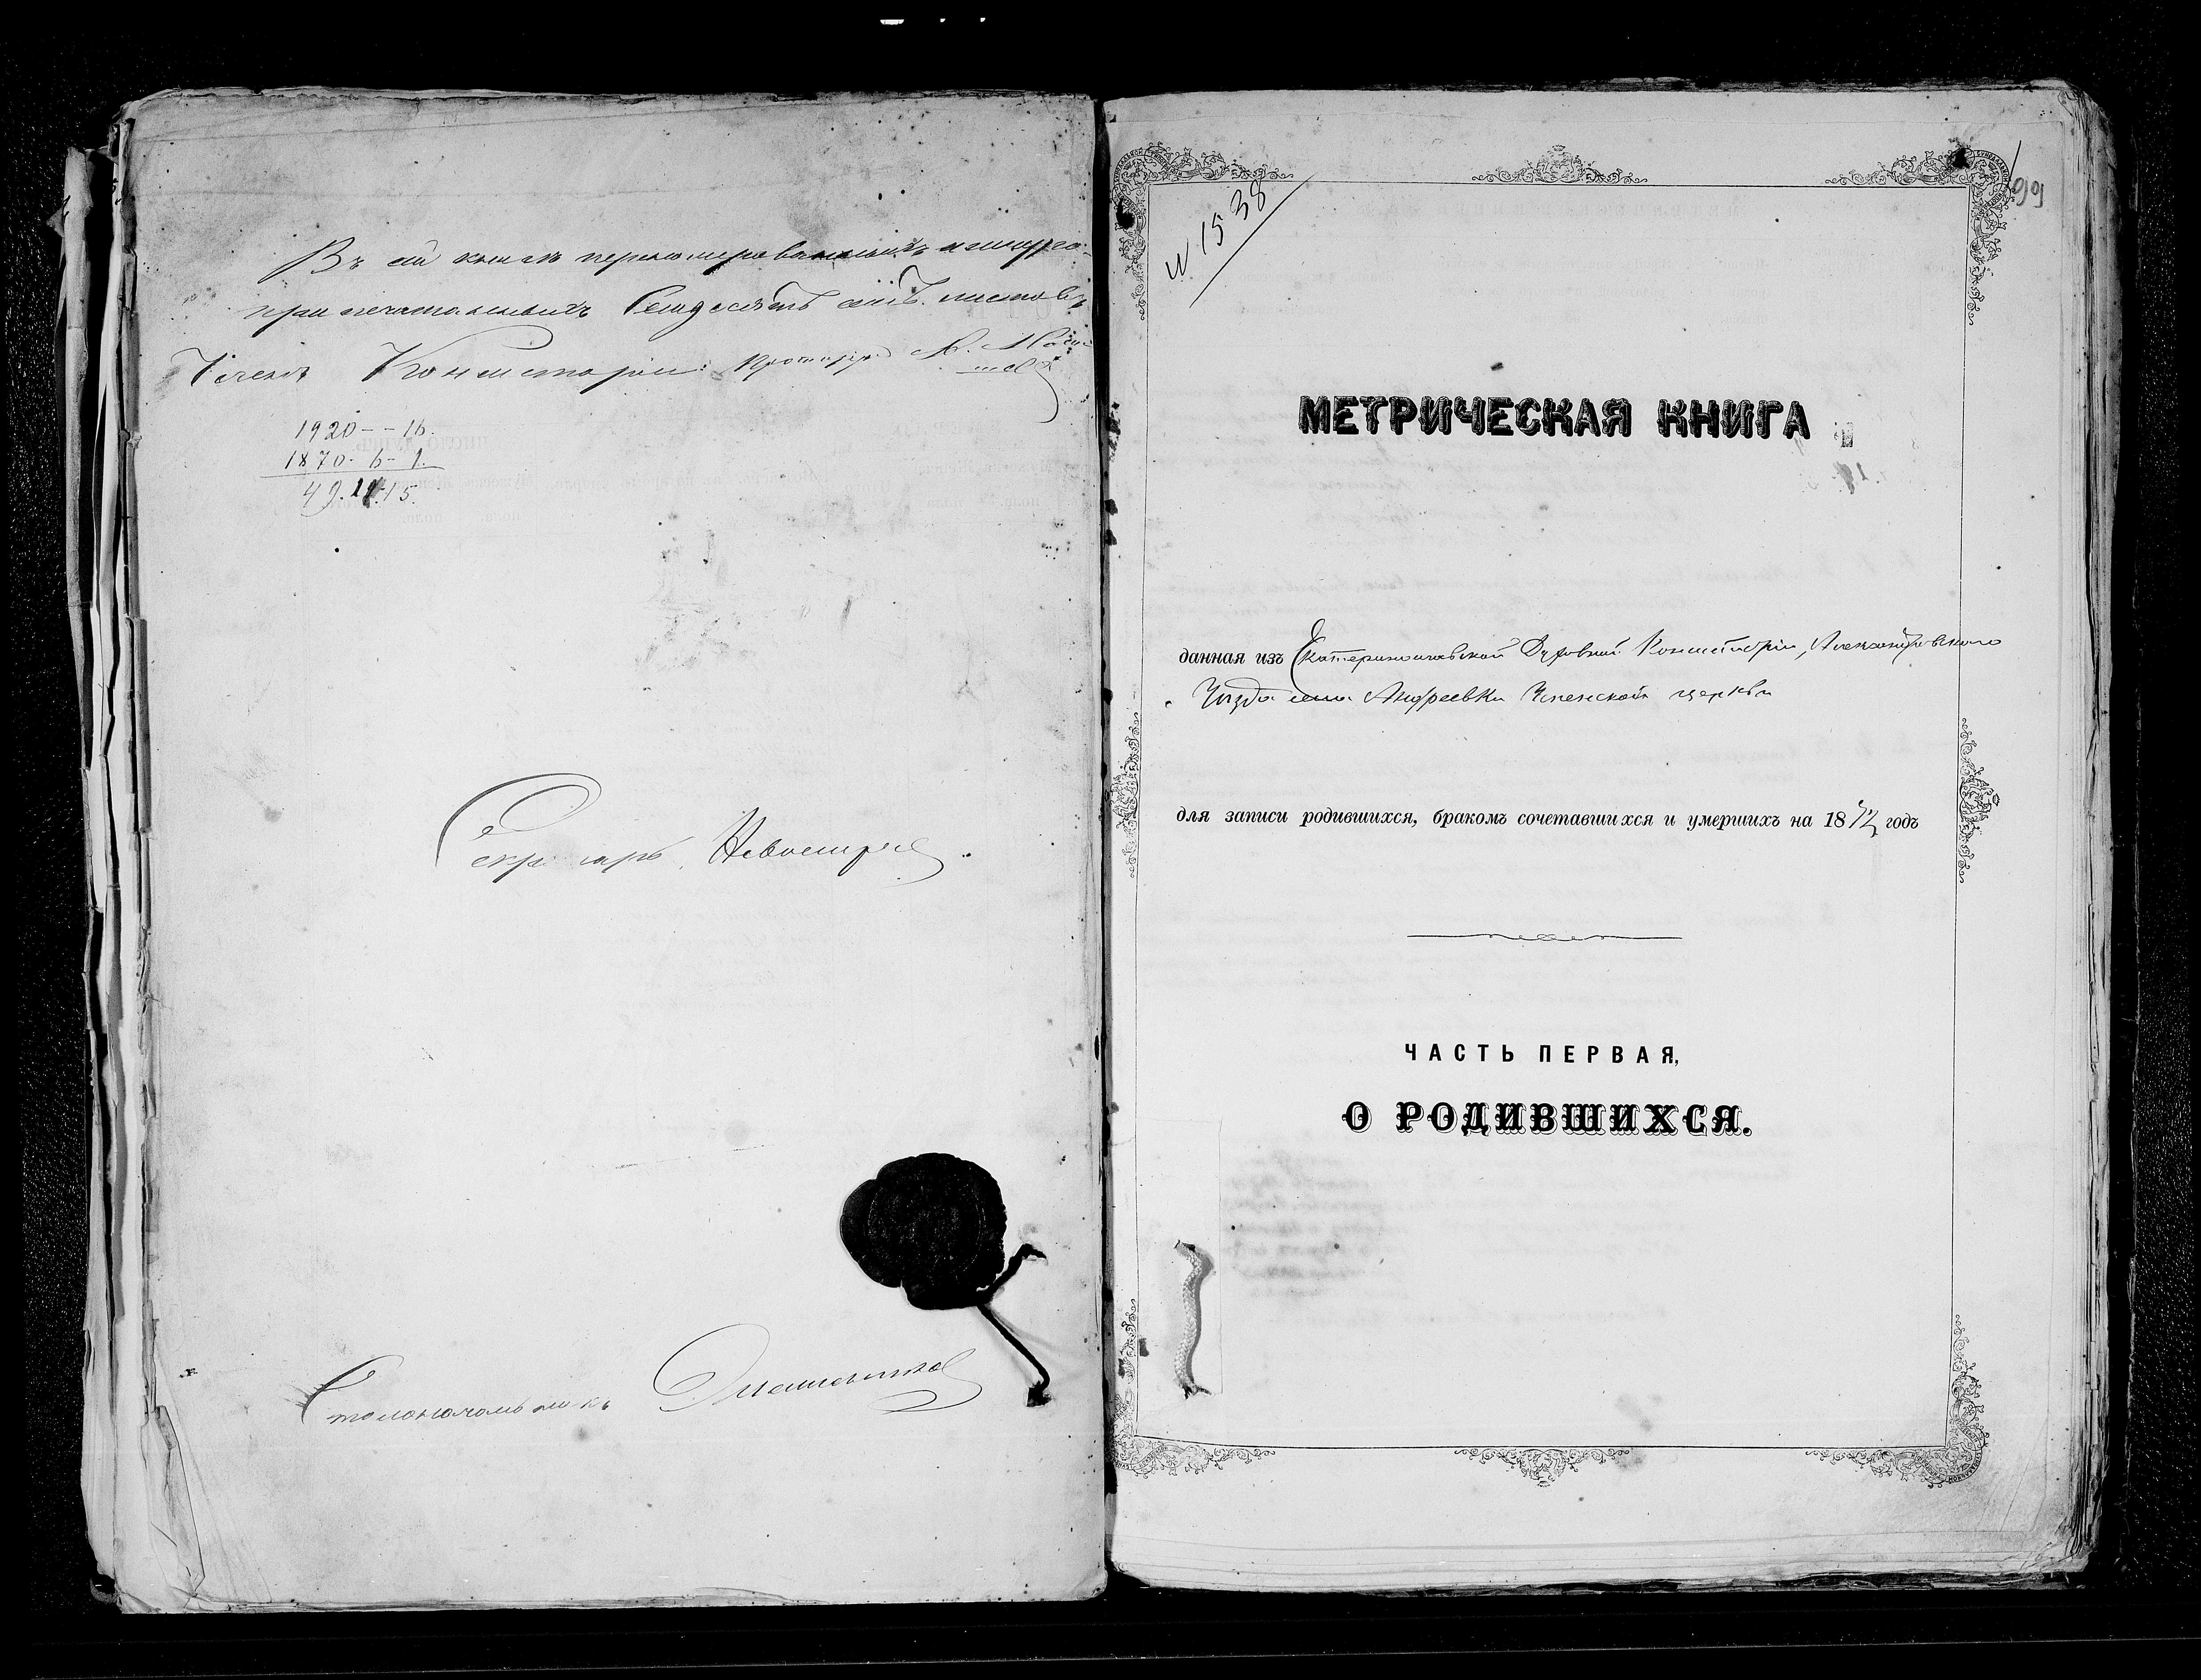 Въ сей книгѣ перенумерованныхъ и шнуро-
припечатанныхъ Семдесятъ листовъ
Членъ Консисторіи:
1920 - - 16.
1870 - 6 - 1.
49. 15.
Секретарь
Столоначальникъ
99
N 1538
МЕТРИЧЕСКАЯ КНИГА
данная изъ Екатеринославской Духовной Консисторіи, Александровскаго
Уѣзда села Андреевки Успенской церкви
для записи родившихся, бракомъ сочетавшихся и умершихъ на 1872 годъ
ЧАСТЬ ПЕРВАЯ,
О РОДИВШИХСЯ.